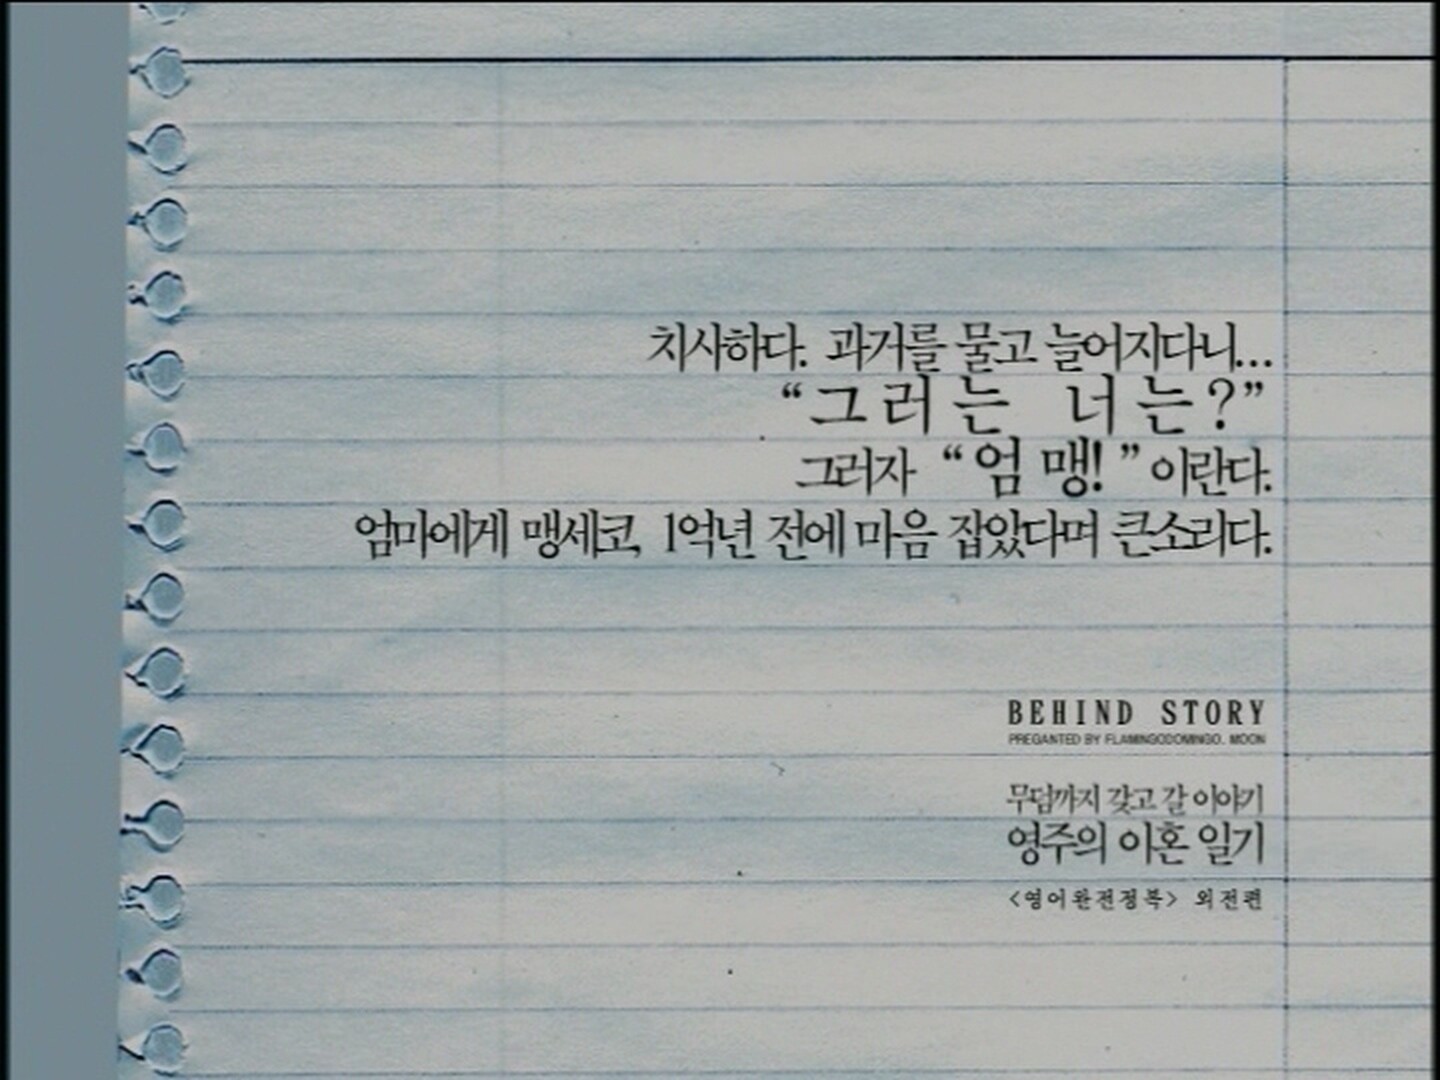 치사하다. 과거를 물고 늘어지다니...
“그러는 너는?”
그러자 “엄맹!” 이란다.
엄마에게 맹세코, 1억년 전에 마음 잡았다며 큰소리다.
BEHIND STORY
PREGANTED BY FLAMINGODOMINGO. MOON
무덤까지 갖고 갈 이야기
영주의 이혼 일기
<영어완전정복> 외전편